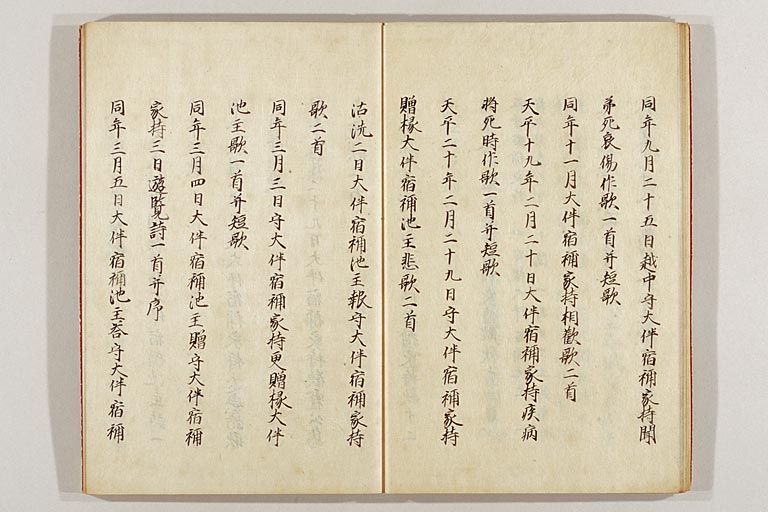 同年九月二十五日越中守大伴宿祢家持聞
弟死哀傷作歌一首并短歌
同年十一月大伴宿祢家持相歡歌二首
天平十九年二月二十日大伴宿祢家持疾病
将死時作歌一首并短歌
天平二十年二月二十九日守大伴宿祢家持
贈掾大伴宿祢池主悲歌二首
沽洗二日大伴宿祢池主報守大伴宿祢家持
歌二首
同年三月三日守大伴宿祢家持更贈掾大伴
池主歌一首并短歌
同年三月四日大伴宿祢池主贈守大伴宿祢
家持三日遊覧詩一首并序
同年三月五日大伴宿祢池主答守大伴宿祢